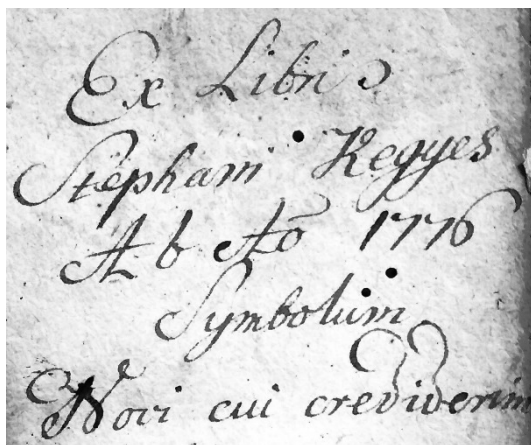 Ex Libris
Stephani Kegyes
Ab Aõ 1776
Symbolum
Novi cui crediderim